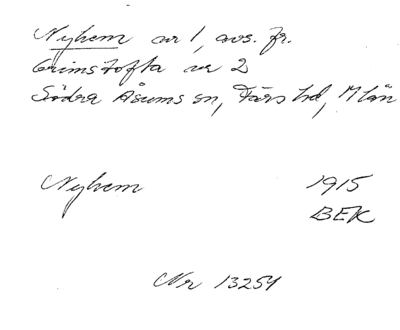 Nyhem nr 1, avs. fr.
Grimstofta nr 2
Södra Åsums sn, Färs hd, M län
Nyhem 1915
BEK
Nr 13254